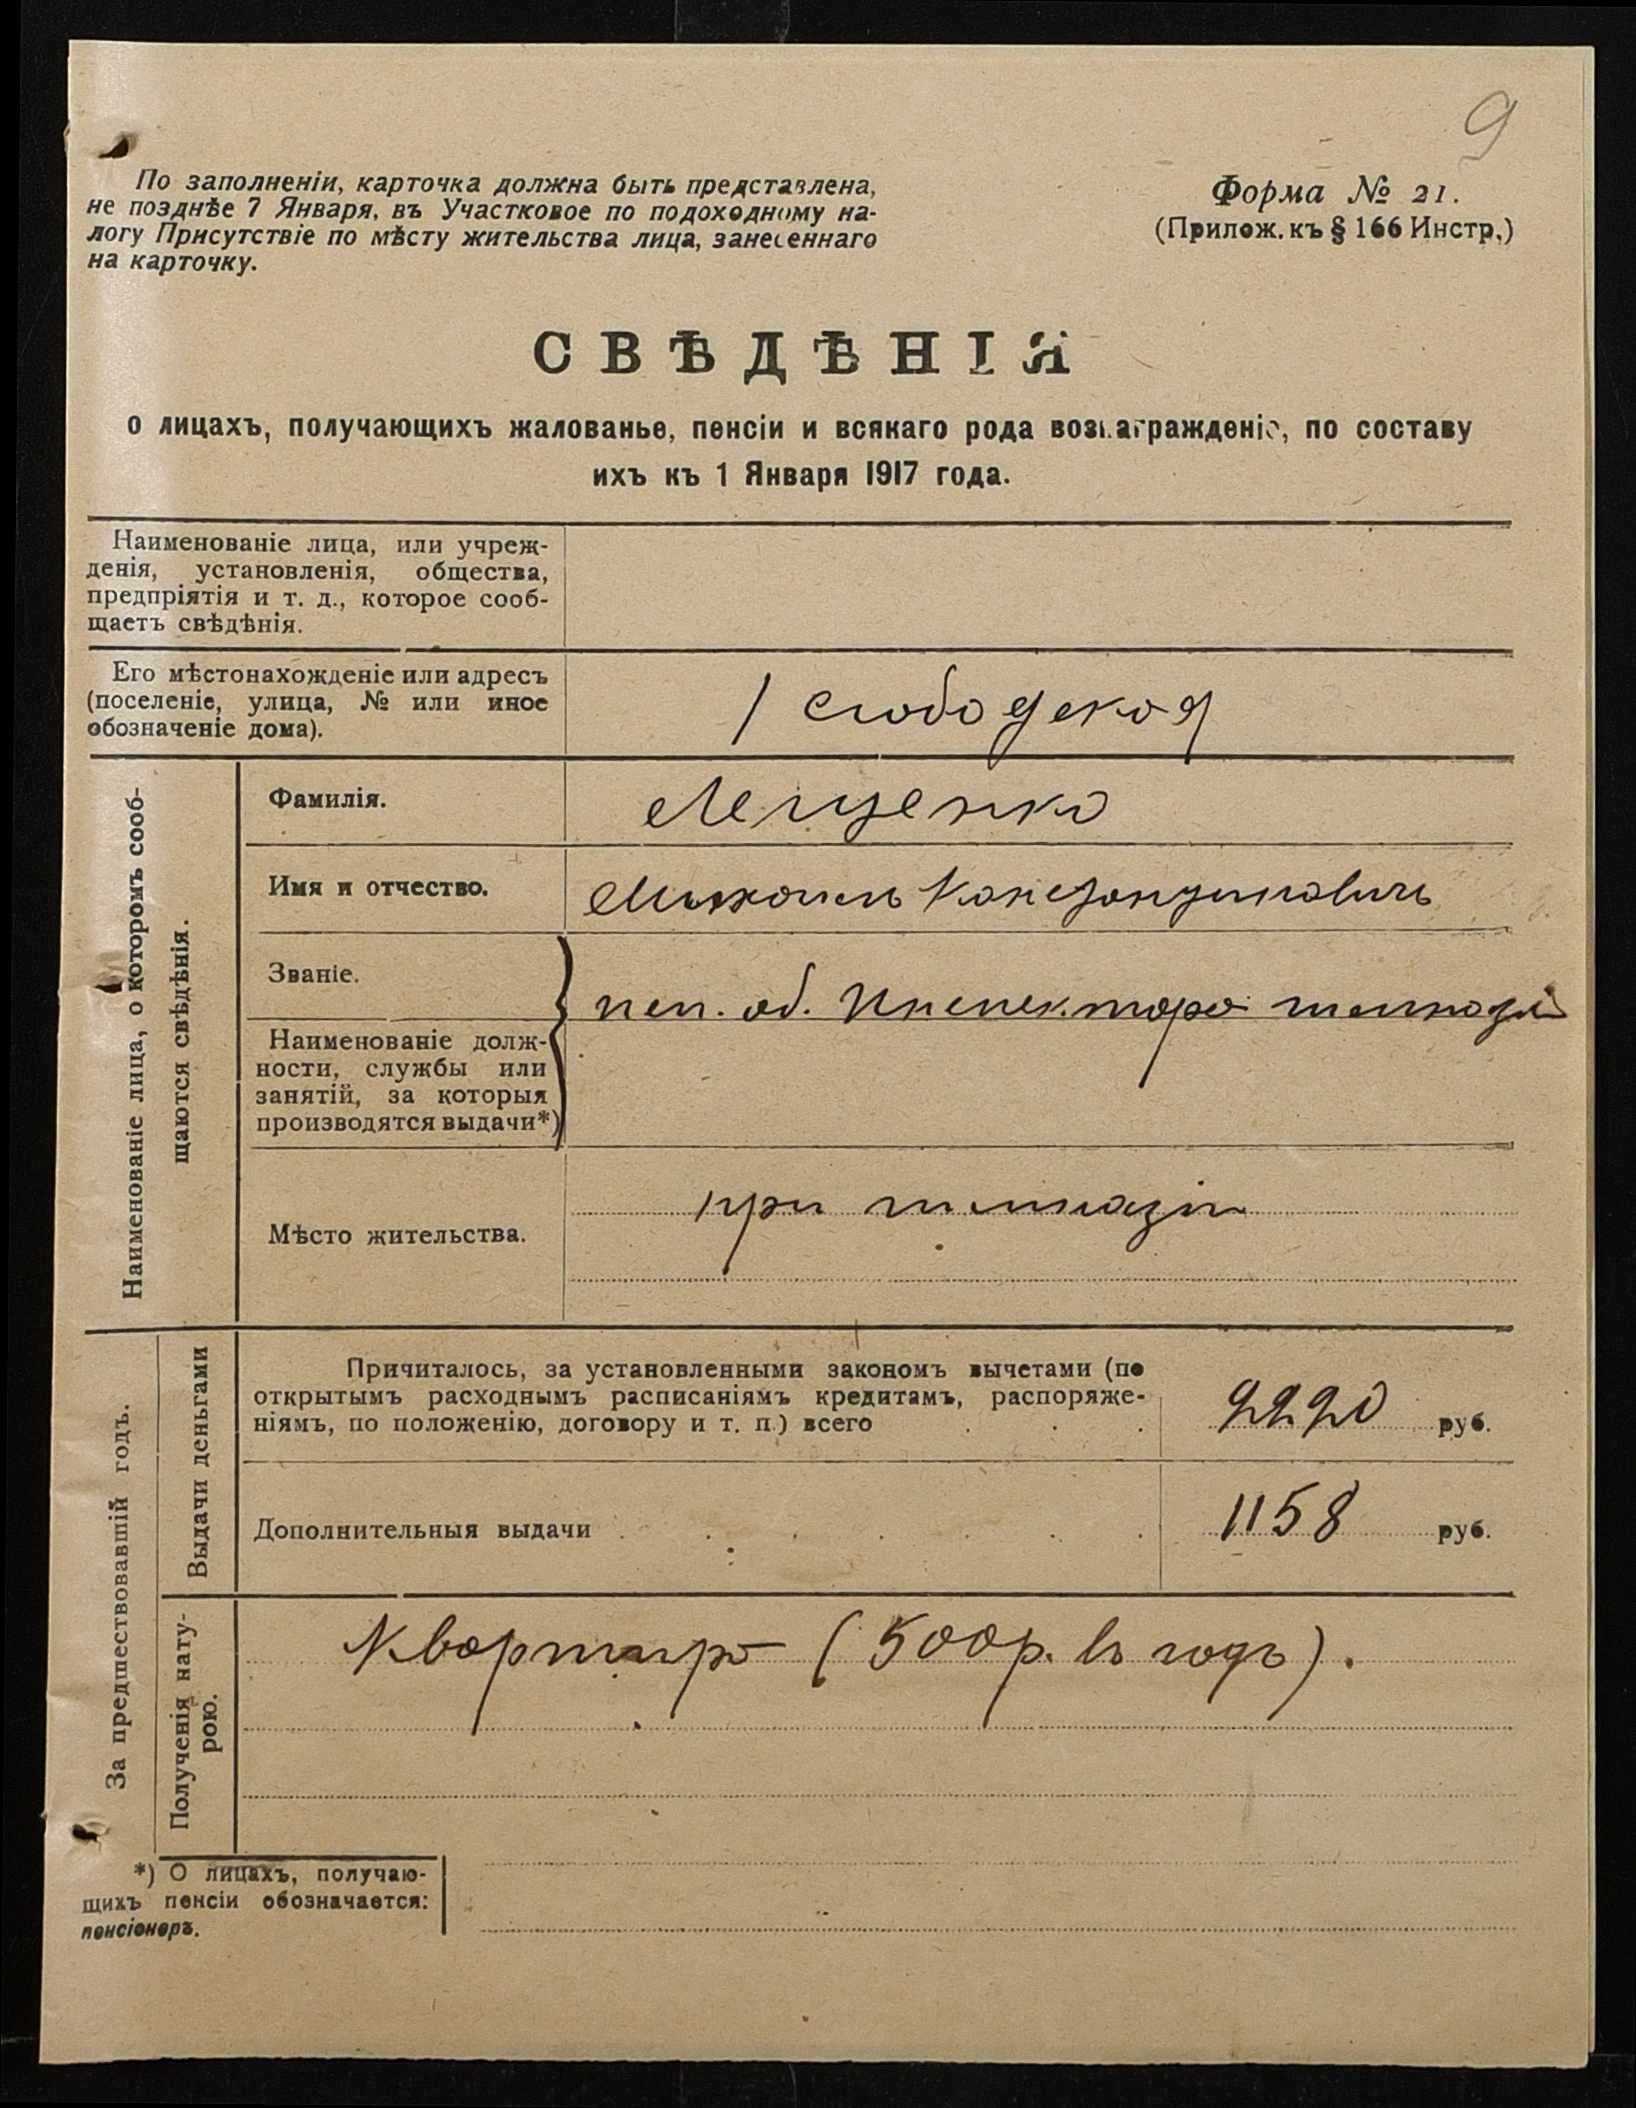 9
По заполненіи, карточка должна быть представлена,
не позднѣе 7 Января, въ Участковое по подоходному на-
логу Присутствіе по мѣсту жительства лица, занесеннаго
на карточку.
Форма № 21.
(Прилож. къ § 166 Инстр.)
СВѢДѢНІЯ
о лицахъ, получающихъ жалованье, пенсіи и всякаго рода вознагражденіе, по составу
ихъ къ 1 Января 1917 года.
Наименованіе лица, или учреж-
денія, установленія, общества,
предпріятія и т. д., которое сооб-
щаетъ свѣдѣнія.
Его мѣстонахожденіе или адресъ
(поселеніе, улица, № или иное
обозначеніе дома).
1 слободская
Наименованіе лица, о которомъ сооб-
щаются свѣдѣнія.
Фамилія.
Лещенко
Имя и отчество.
Михаилъ Константиновичъ
Званіе.
исп. об. Инспектора гимназіи
Наименованіе долж-
ности, службы или
занятій, за которыя
производятся выдачи*)
Мѣсто жительства.
при гимназіи
За предшествовавшій годъ.
Выдачи деньгами
Причиталось, за установленными закономъ вычетами (по
открытымъ расходнымъ расписаніямъ кредитамъ, распоряже-
ніямъ, по положенію, договору и т. п.) всего
2220 руб.
Дополнительныя выдачи
1158 руб.
Полученія нату-
рою.
Квартира (500 р. въ годъ).
*) О лицахъ, получаю-
щихъ пенсіи обозначается:
пенсіонеръ.